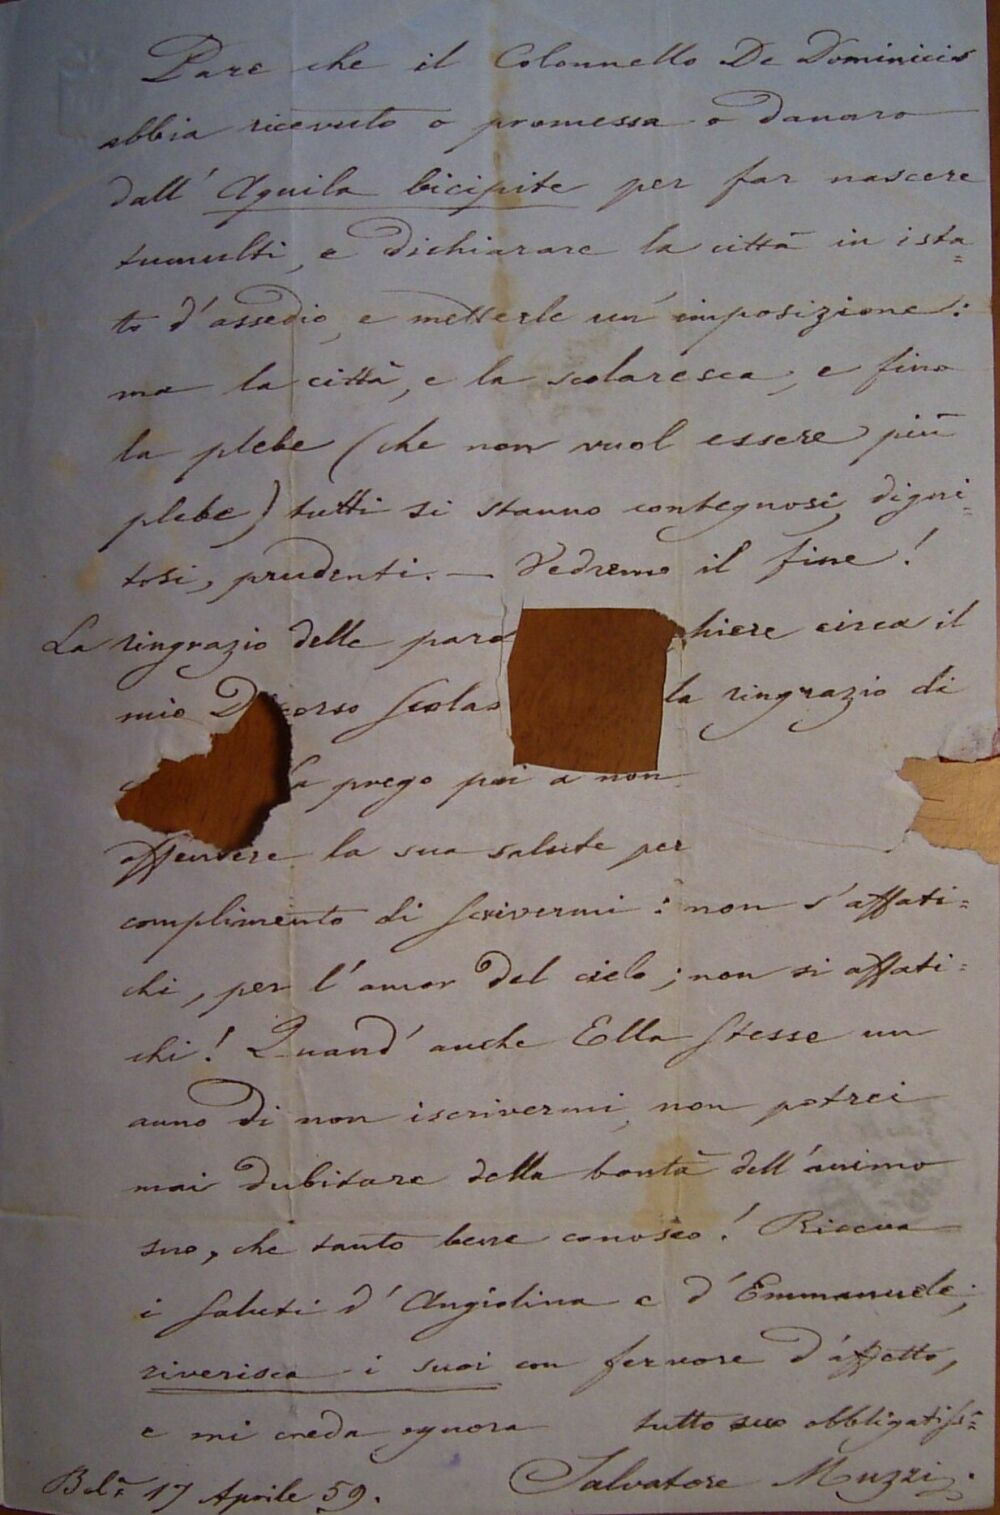 Pare che il Colonnello De Dominicis
abbia ricevuto o promessa o danaro
dall' Aquila bicipite per far nascere
tumulti, e dichiarare la città in ista=
to d'assedio, e metterle un' imposizione:
ma la città, e la scolaresca, e fino
la plebe (che non vuol essere più
plebe) tutti si stanno contegnosi, digni=
tosi, prudenti. — Vedremo il fine!
La ringrazio delle paro hiere circa il
mio D orso Scolas la ringrazio di
a prego poi a non
offendere la sua salute per
complimento di scrivermi: non s'affati=
chi, per l'amor del cielo; non si affati=
chi! Quand' anche Ella stesse un
anno di non iscrivermi, non potrei
mai dubitare della bontà dell'animo
suo, che tanto bene conosco! Riceva
i saluti d'Angiolina e d'Emmanuele;
riverisca i suoi con fervore d'affetto,
e mi creda ognora tutto suo obbligatiss=
Bol.a 17 Aprile 59. Salvatore Muzzi.